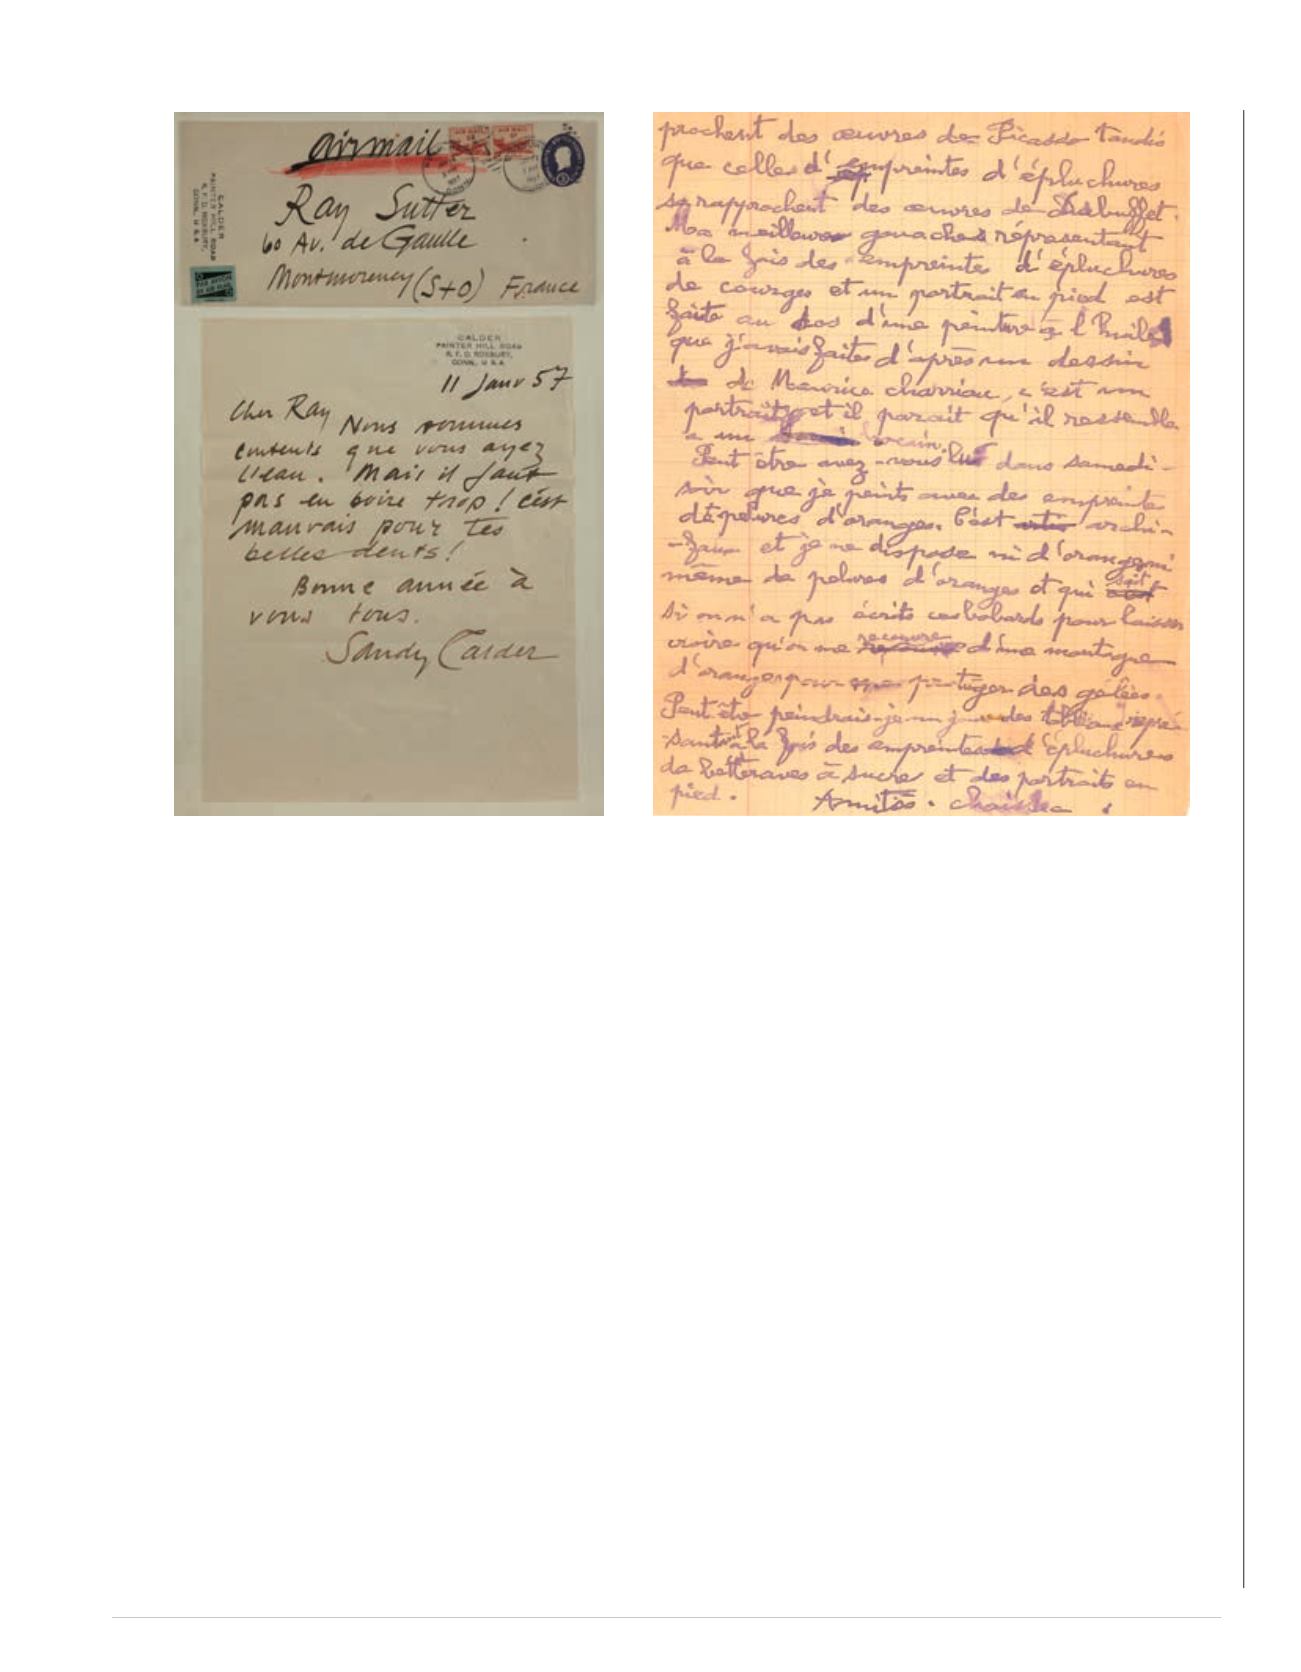 airmail
AIR MAIL
AIR MAIL
CALDER
PAINTER HILL ROAD
R. F. D. ROXBURY,
CONN., U S A
Ray Sutter
60 Av. de Gaulle
Montmorency (S+O) France
PAR AVION
BY AIR MAIL
CALDER
PAINTER HILL ROAD
R. F. D. ROXBURY,
CONN., U S A
11 Janv 57
Cher Ray
Nous sommes
contents que vous ayez
l'eau. Mais il faut
pas en boire trop! c'est
mauvais pour tes
belles dents!
Bonne année à
vous tous.
Sandy Calder
prochent des œuvres de Picasso tandis
que celles d'empreintes d'épluchures
se rapprochent des œuvres de Dubuffet.
Ma meilleure gouache représentant
à la fois des empreintes d'épluchures
de courges et un portrait en pied est
faite au dos d'une peinture à l'huile
que j'avais faites d'après un dessin
de Maurice charriau, c'est un
portrait et il parait qu'il ressemble
a un
Peut être avez-vous lu dans samedi-
soir que je peints avec des empreintes
de pelures d'oranges. C'est archi-
-faux et je ne dispose ni d'oranges ni
même de pelures d'oranges et qui sait
si on n'a pas écrits ces bobards pour laisser
croire qu'on me recouvre d'une montagne
d'oranges pour me protéger des gelées.
Peut être peindrais-je un jour des tableaux repré-
sentant à la fois des empreintes d'épluchures
de betteraves à sucre et des portraits en
pied.
Amitiés. Chaissac.